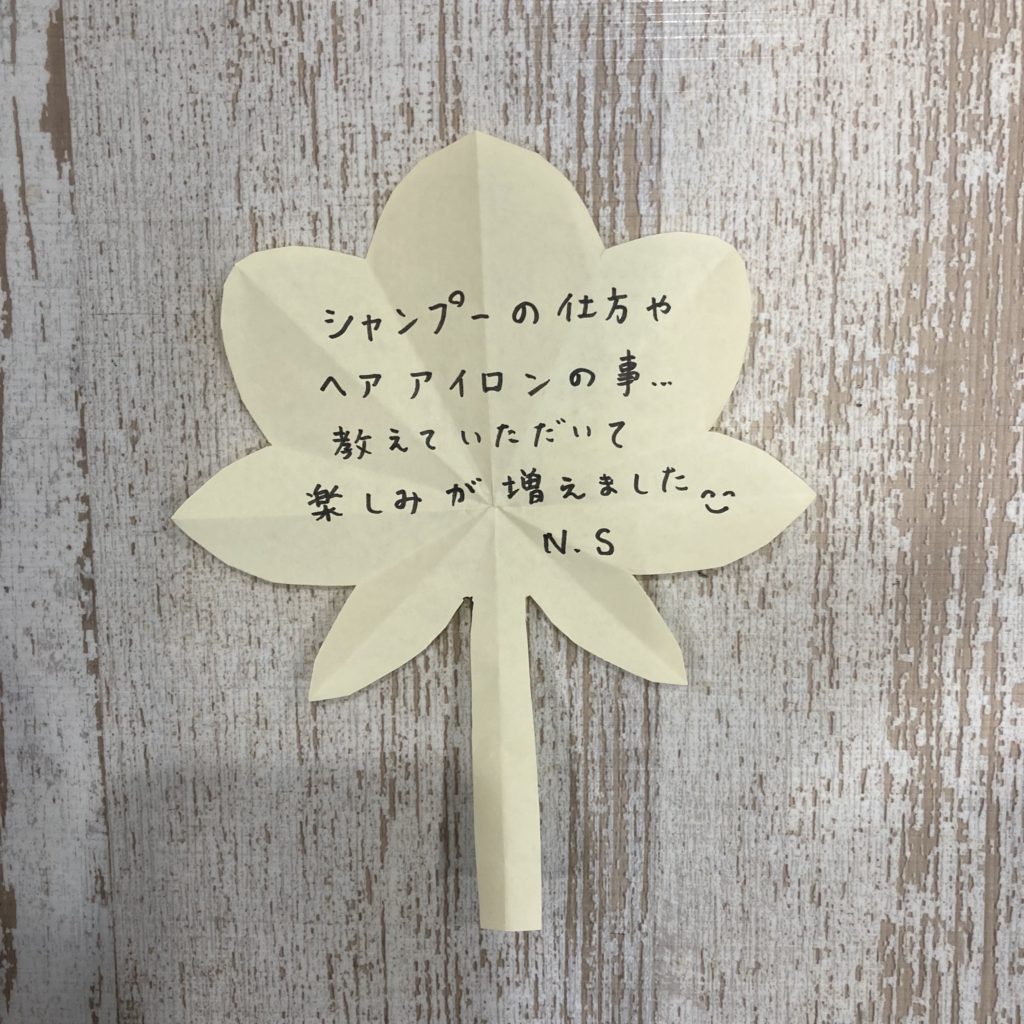 シャンプーの仕方や
ヘアアイロンの事…
教えていただいて
楽しみが増えました
N.S